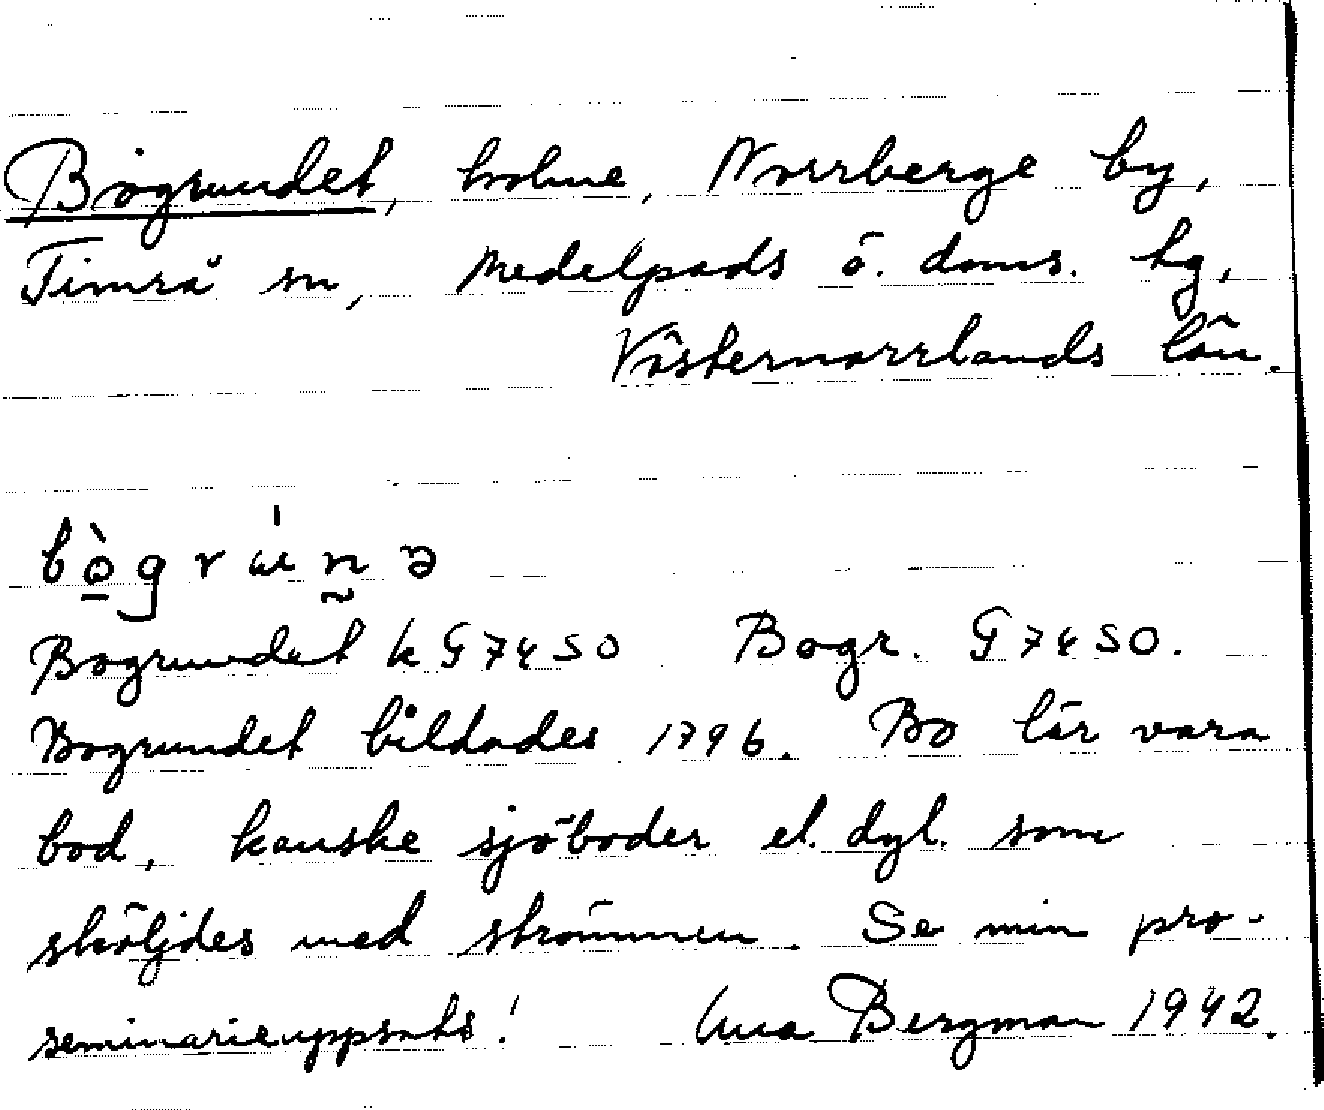 Bogrundet, holme, Norrberge by,
Timrå sn, Medelpads ö. doms. tg,
Västernorrlands län.
bògrúnə
Bogrundet k G7450 Bogr. G7450.
Bogrundet bildades 1796. Bo lär vara
bod, kanske sjöboder el. dyl. som
sköljdes med strömmen. Se min pro-
seminarieuppsats! Bergman 1942.